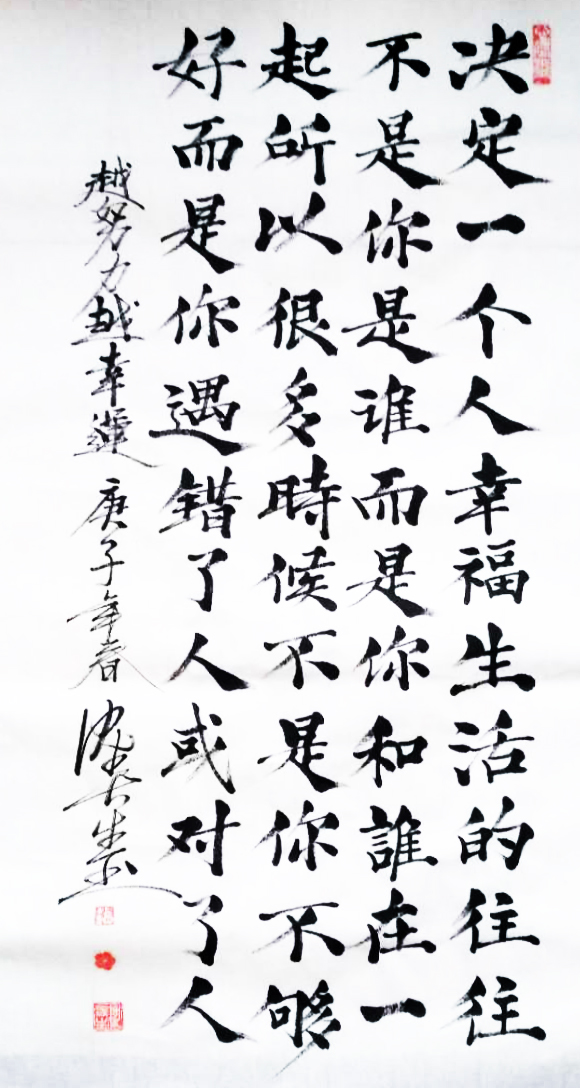 决定一个人幸福生活的往往
不是你是谁而是你和誰在一
起所以很多時候不是你不够
好而是你遇错了人或对了人
越努力越幸運 庚子年春